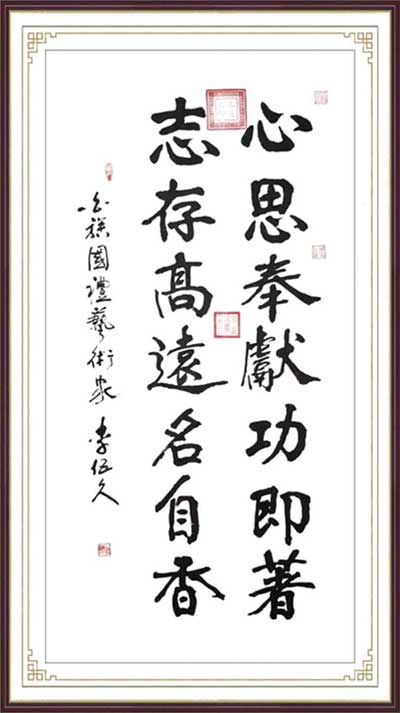 心思奉獻功即著
志存髙遠名自香
白族國禮藝術家 李伍久